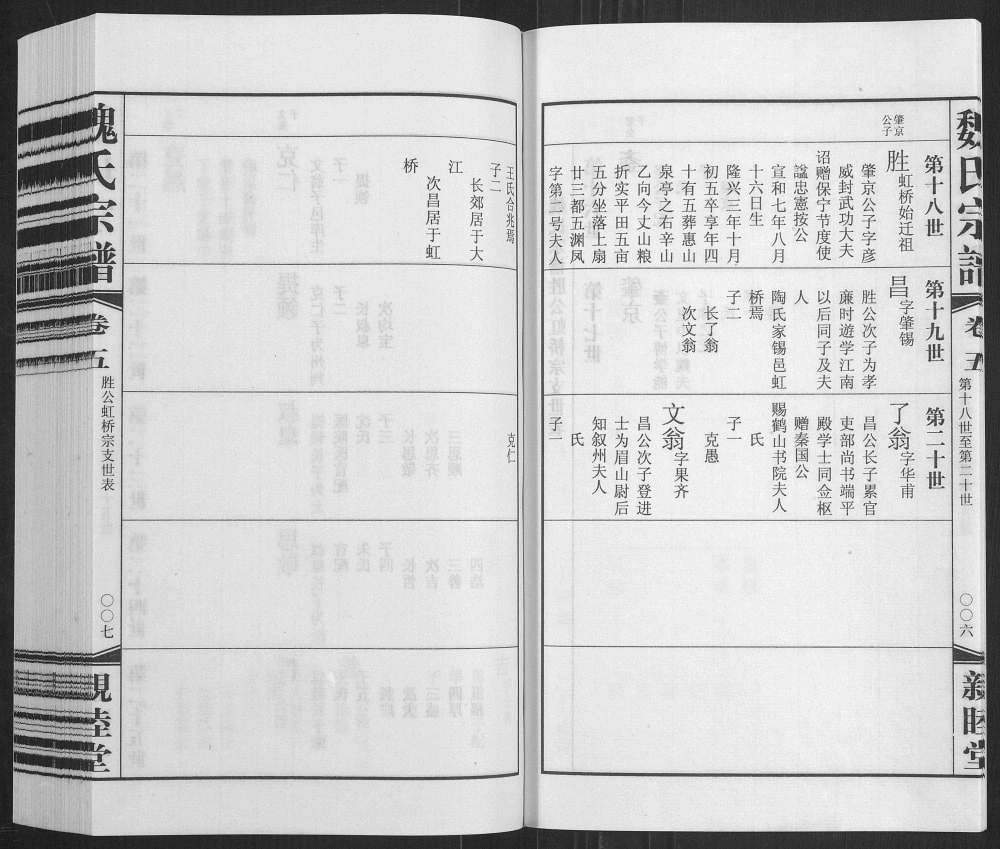 魏氏宗谱
卷五
第十八世至第二十世
〇〇六
亲睦堂
肇京
公子
第十八世
胜 虹桥始迁祖
肇京公子字彦
威封武功大夫
诏赠保宁节度使
谥忠宪按公
宣和七年八月
十六日生
隆兴三年十月
初五卒享年四
十有五葬惠山
泉亭之右辛山
乙向今丈山粮
折实平田五亩
五分坐落上扇
廿三都五渊凤
字第二号夫人
第十九世
昌 字肇锡
胜公次子为孝
廉时遊学江南
以后同子及夫
人
陶氏家锡邑虹
桥焉
子二
长了翁
次文翁
第二十世
了翁 字华甫
昌公长子累官
吏部尚书端平
殿学士同佥枢
赠秦国公
赐鹤山书院夫人
氏
子一
克愚
文翁 字果齐
昌公次子登进
士为眉山尉后
知叙州夫人
氏
子一
王氏合兆焉
子二
长郊居于大
江
次昌居于虹
桥
克仁
魏氏宗谱
卷五
胜公虹桥宗支世表
〇〇七
亲睦堂